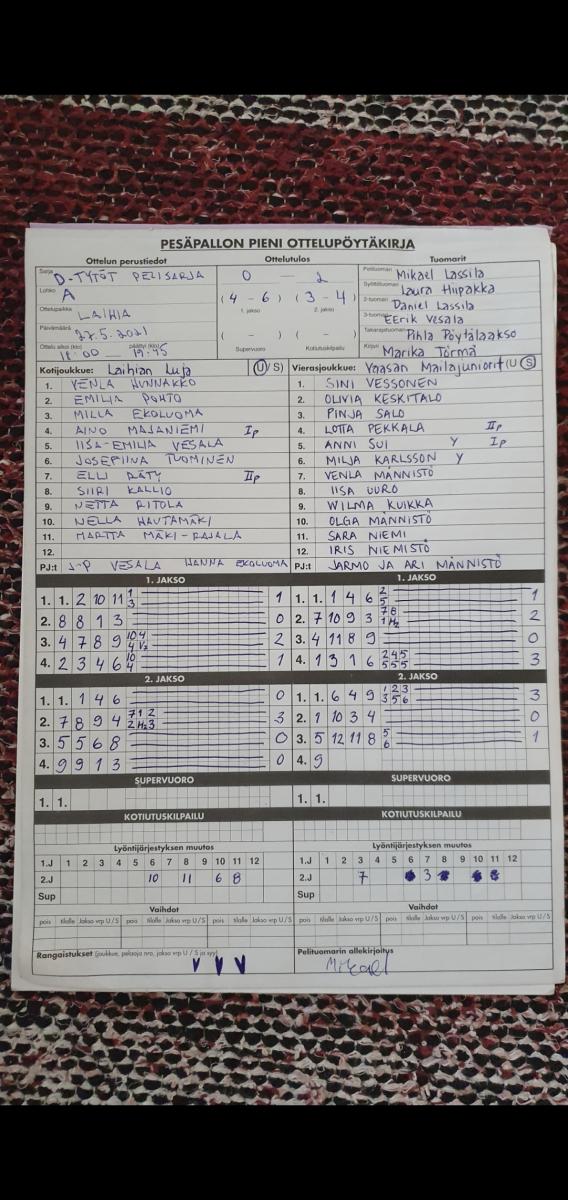 PESÄPALLON PIENI OTTELUPÖYTÄKIRJA
Ottelun perustiedot Ottelutulos Tuomarit
Sarja D-TYTÖT PELISARJA 0 — 2 Pelituomari Mikael Lassila
Lohko A Syöttötuomari Laura Hiipakka
(4 - 6) (3 - 4) 2-tuomari Daniel Lassila
Ottelupaikka LAIHIA 1. jakso 2. jakso
3-tuomari Eerik Vesala
Päivämäärä 27.5.2021 ( - ) ( - ) Takarajatuomari Pihla Pöytälaakso
Ottelu alkoi (klo) 18:00 päättyi (klo) 19:45 Supervuoro Kotiutuskilpailu Kirjuri Marika Törmä
Kotijoukkue: Laihian Luja (U/S) Vierasjoukkue: Vaasan Mailajuniorit (U/S)
1. VENLA HUNNAKKO 1. SINI VESSONEN
2. EMILIA POHTO 2. OLIVIA KESKITALO
3. MILLA EKOLUOMA 3. PINJA SALO
4. AINO MAJANIEMI Ip 4. LOTTA PEKKALA IIp
5. IISA-EMILIA VESALA 5. ANNI SUI Y Ip
6. JOSEFIINA TUOMINEN 6. MILJA KARLSSON Y
7. ELLI RÄTY IIp 7. VENLA MÄNNISTÖ
8. SIIRI KALLIO 8. IISA UURO
9. NETTA RITOLA 9. WILMA KUIKKA
10. NELLA HAUTAMÄKI 10. OLGA MÄNNISTÖ
11. MARTTA MÄKI-RAJALA 11. SARA NIEMI
12. 12. IRIS NIEMISTÖ
PJ:t J-P VESALA HANNA EKOLUOMA PJ:t JARMO JA ARI MÄNNISTÖ
1. JAKSO 1. JAKSO
1. 1. 2 10 11 1/3 1 1. 1. 1 4 6 2/5 1
2. 8 8 1 3 0 2. 7 10 9 3 78/1H2 2
3. 4 7 8 9 104/4V2 2 3. 4 11 8 9 0
4. 2 3 4 6 10/4 1 4. 1 3 1 6 245/555 3
2. JAKSO 2. JAKSO
1. 1. 1 4 6 0 1. 1. 6 4 9 123/356 3
2. 7 8 9 4 712/2H23 3 2. 1 10 3 4 0
3. 5 5 6 8 0 3. 5 12 11 8 5/6 1
4. 9 9 1 3 0 4. 9
SUPERVUORO SUPERVUORO
1. 1. 1. 1.
KOTIUTUSKILPAILU KOTIUTUSKILPAILU
Lyöntijärjestyksen muutos Lyöntijärjestyksen muutos
1.J 1 2 3 4 5 6 7 8 9 10 11 12 1.J 1 2 3 4 5 6 7 8 9 10 11 12
2.J 10 11 6 8 2.J 7 3
Sup Sup
Vaihdot Vaihdot
pois tilalle Jakso vrp U/S pois tilalle Jakso vrp U/S pois tilalle Jakso vrp U/S pois tilalle Jakso vrp U/S
Rangaistukset (joukkue, pelaaja nro, jakso vrp U / S ja syy) Pelituomarin allekirjoitus
V V V Mikael